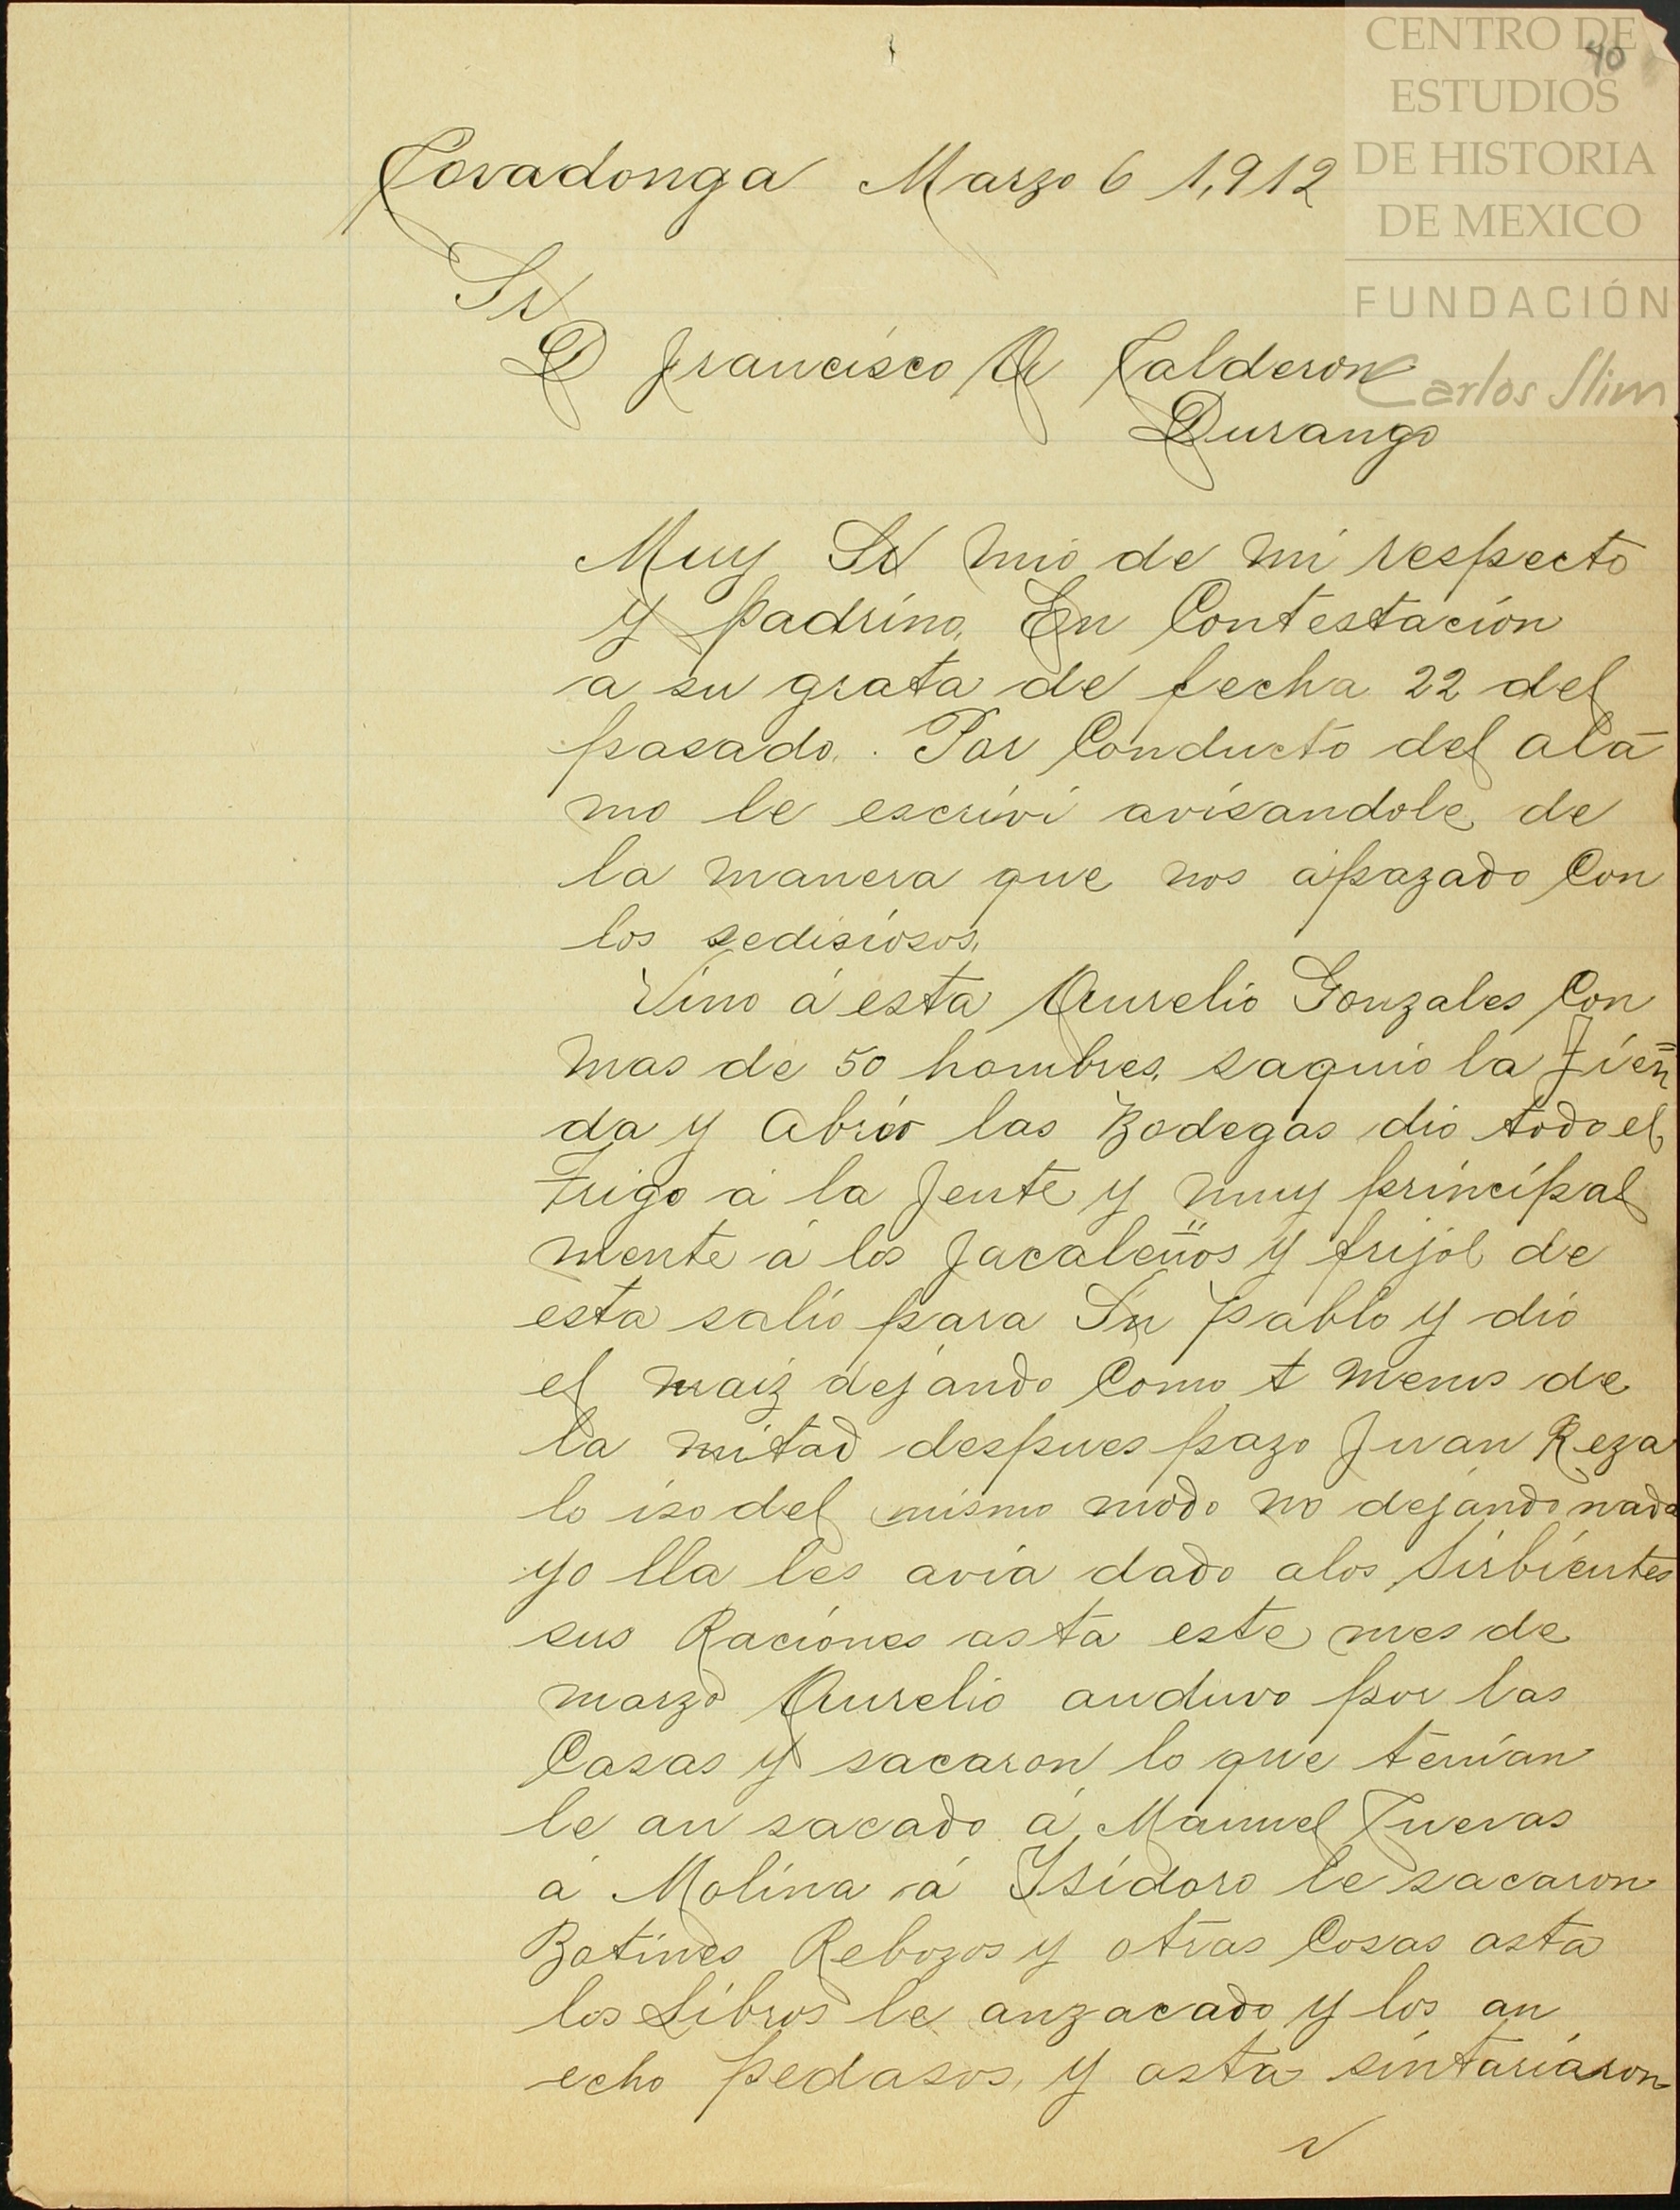 CENTRO DE
ESTUDIOS
DE HISTORIA
DE MEXICO
FUNDACIÓN
Carlos Slim
40
Covadonga Marzo 6 1,912
Sr
D Francisco A Calderon
Durango
Muy Sr mio de mi respecto
y padrino, En Contestación
a su grata de fecha 22 del
pasado. Por Conducto del ala
mo le escriví avisandole de
la manera que nos apazado Con
los sedisiosos,
Vino á esta Aurelio Gonzales Con
mas de 50 hombres, saquio la Tien
da y Abrio las Bodegas dio todo el
Trigo a la Jente y muy principal
mente á los Jacaleños y frijol de
esta salio para Sn Pablo y dio
el maiz dejando Como t menos de
la mitad despues pazo Juan Reza
lo iso del mismo modo no dejando nada
yo lla les avia dado alos Sirbientes
sus Raciones asta este mes de
marzo Aurelio anduvo por las
Casas y sacaron lo que tenian
le an sacado á Manuel Cuevas
á Molina á Ysidoro le sacaron
Botines Rebozos y otras Cosas asta
los Libros le anzacado y los an
echo pedasos, y asta sintariaron